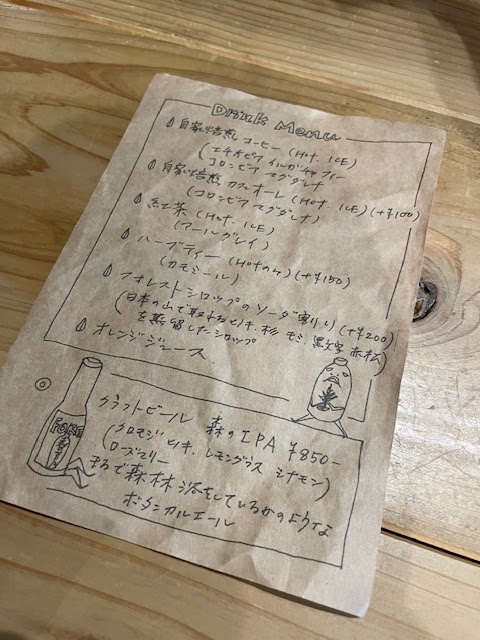 Drink Menu
自家焙煎 コーヒー (Hot. ICE)
(エチオピア イルガチャフィー
コロンビア マグダレナ
自家焙煎 カフェオーレ (Hot. ICE) (+¥100)
(コロンビア マグダレナ)
紅茶 (Hot. ICE)
(アールグレイ)
ハーブティー (Hotのみ) (+¥150)
(カモミール)
フォレストシロップのソーダ割り (+¥200)
(日本の山で取れるヒノキ. 杉 モミ. 黒文字 赤松)
を蒸留したシロップ
オレンジジュース
クラフトビール 森のIPA ¥850-
(クロモジ ヒノキ. レモングラス シナモン)
ローズマリー
まるで森林浴をしているかのような
ボタニカルエール